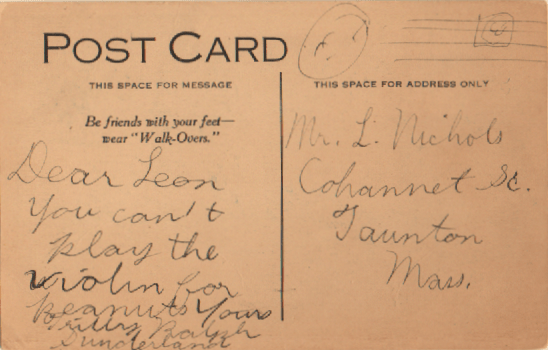 POST CARD
THIS SPACE FOR MESSAGE
THIS SPACE FOR ADDRESS ONLY
Be friends with your feet—
wear "Walk-Overs."
Dear Leon
You can't
play the
violin for
peanuts Yours
Truly Ralph
Sunderland
Mr. L. Nichols
Cohannet St.
Taunton
Mass.